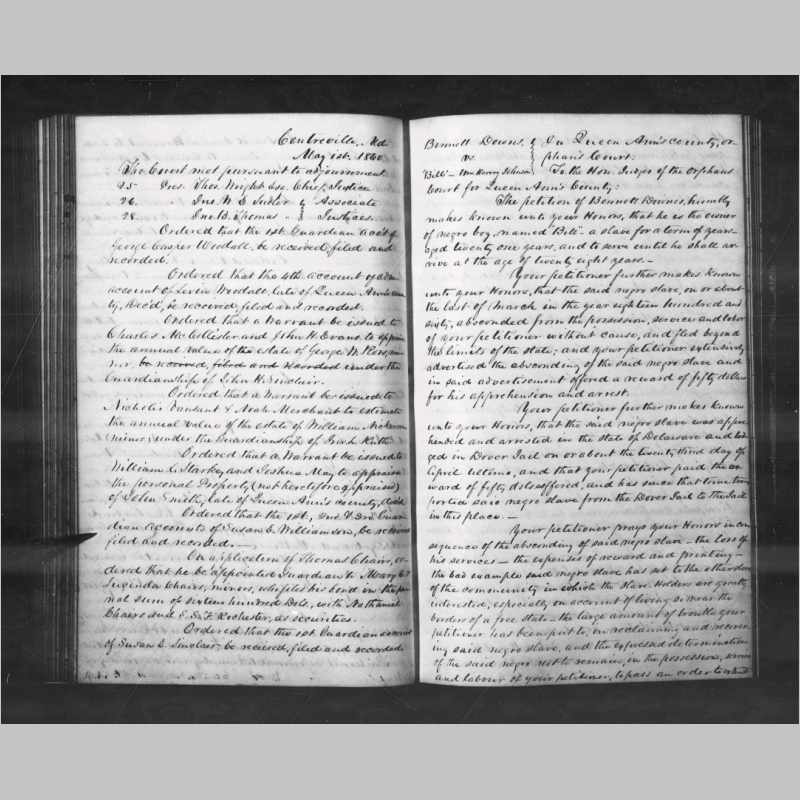 Centreville, Md.
May 1st. 1860
The Court met pursuant to adjournment
25. Pres. Thos. Wright Esq. Chief Justice
26. " Associate
28. " Thomas " Justices.
Ordered that the 1st. Guardian acc't of
George Casper Woodall, be received, filed and
recorded.
Ordered that the 4th. account
account of Levin Woodall, late of Queen Ann's coun
ty, dec'd, be received, filed and recorded.
Ordered that a Warrant be issued to
Charles McCollister and John H. Evans to appraise
the annual value of the estate of George W.
be received, filed and recorded under the
Guardianship of John H. Sinclair.
Ordered that a Warrant be issued to
Nicholas & Noah Merchant to estimate
the annual value of the estate of William
minor, under the Guardianship of
Ordered that a Warrant be issued to
William L. Starkey, and Joshua May to appraise
the personal Property (not heretofore appraised)
of John Smith, late of Queen Ann's county, dec'd
Ordered that the 1st., 2nd. & 3rd. Guar
dian accounts of Susan E. Williamson, be received
filed and recorded. —
On application of Thomas Chairs, or
dered that he be appointed Guardian to Mary E. &
Lucinda Chairs, minors, who files his bond in the pe
nal sum of sixteen hundred Dols, with Nathaniel
Chairs and Rochester, as securities.
Ordered that the 1st. Guardian account
of Susan E. Sinclair, be received, filed and recorded
Bennett Downs, } In Queen Ann's county, or
vs. } phan's Court:
Bill – Wm Henry Johnson } To the Hon. Judges of the Orphans
Court for Queen Ann's County:
The petition of Bennett Downes, humbly
makes known unto your Honors, that he is the owner
of negro boy, named "Bill" a slave for a term of years
aged twenty one years, and to serve until he shall ar
rive at the age of twenty eight years. —
Your petitioner further makes known
unto your Honors, that the said negro slave, on or about
the last of March in the year eighteen hundred and
sixty, absconded from the possession, service and labor
of your petitioner without cause, and fled beyond
the limits of the state; and your petitioner extensively
advertised the absconding of the said negro slave and
in said advertisement offered a reward of fifty dollars
for his apprehension and arrest.
Your petitioner further makes known
unto your Honors, that the said negro slave was appre
hended and arrested in the State of Delaware and lod
ged in Dover Jail on or about the twenty third day of
April ultimo, and that your petitioner paid the re
ward of fifty dols offered, and has since that time trans
ported said negro slave from the Dover Jail to the Jail
in this place. —
Your petitioner prays your Honors in con
sequence of the absconding of said negro slave – the loss of
his services – the expenses of reward and printing –
the bad example said negro slave has set to the other slaves
of the community in which the Slave Holders are greatly
interested, especially on account of living so near the
borders of a free state – the large amount of trouble your
petitioner has been put to, in reclaiming and recover
ing said negro slave, and the expressed determination
of the said negro not to remain, in the possession, service
and labour of your petitioner, to pass an order to